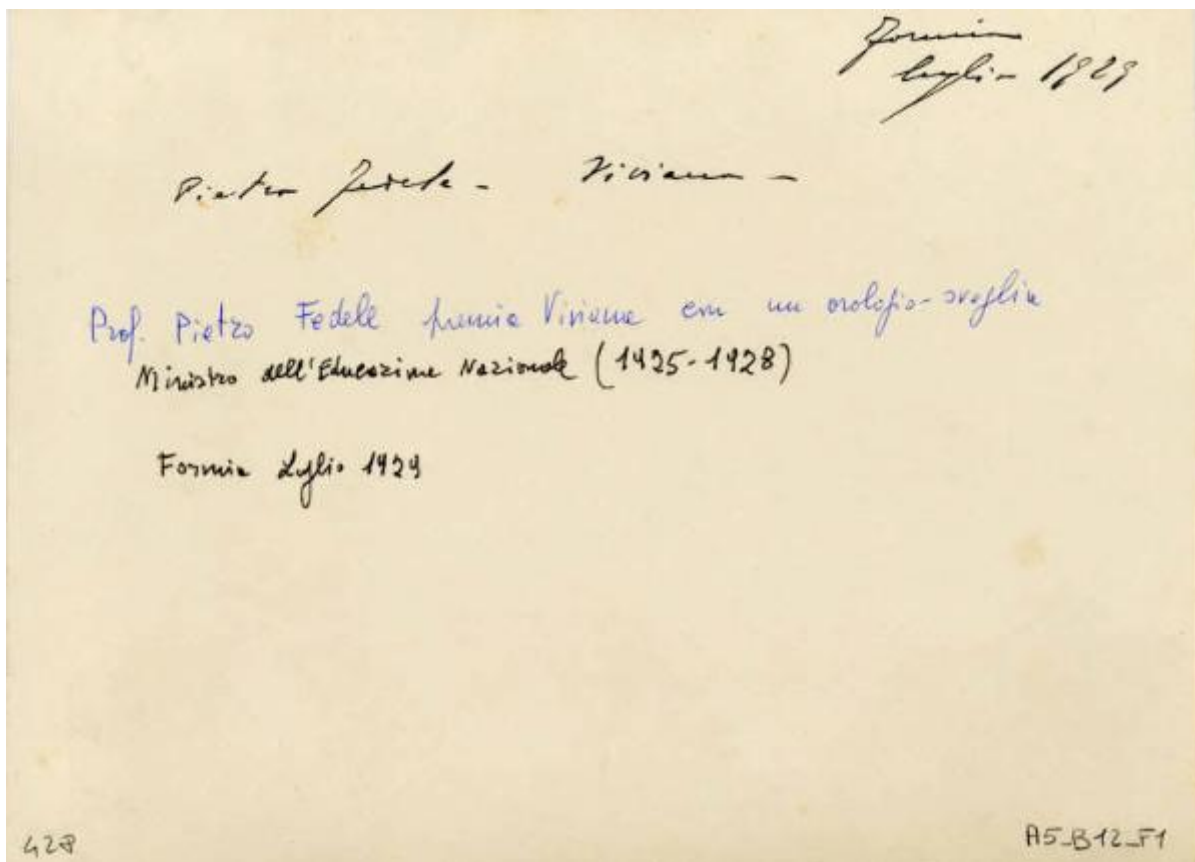 Formia
luglio 1929
Pietro Fedele - Viviana -
Prof. Pietro Fedele premia Viviana con un orologio-sveglia
Ministro dell'Educazione Nazionale (1925-1928)
Formia Luglio 1929
428
A5_B12_F1